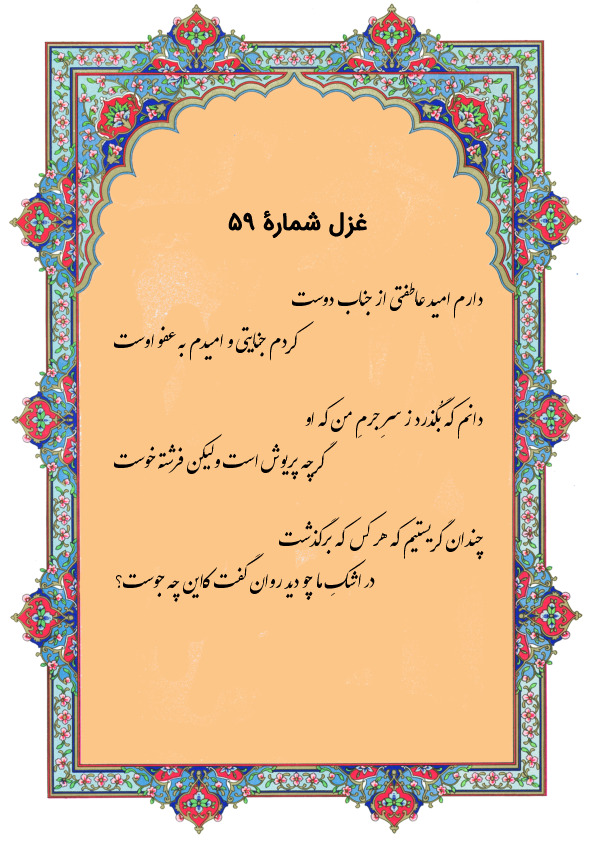 غزل شمارهٔ ۵۹
دارم امید عاطفتی از جناب دوست
کردم جنایتی و امیدم به عفو اوست
دانم که بگذرد ز سرِ جرمِ من که او
گرچه پریوش است ولیکن فرشته خوست
چندان گریستیم که هر کس که برگذشت
در اشکِ ما چو دید روان گفت کاین چه جوست؟